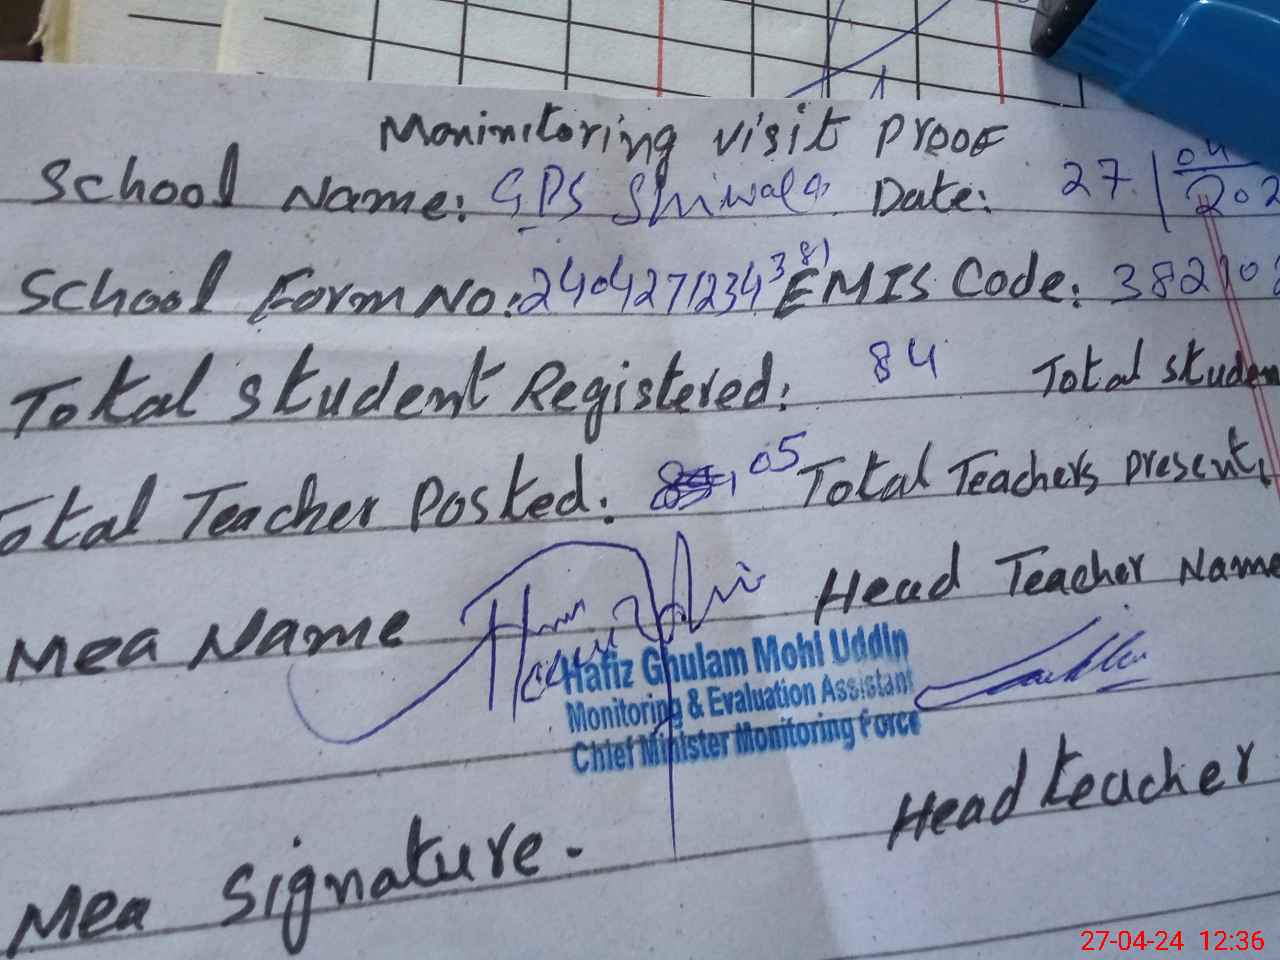 Moninitoring visit proof
School Name: GPS Shiwala Date: 27 | 04 202
School Form No: 2404271234381 EMIS Code: 382102
Total Student Registered: 84 Total Studen
Total Teacher Posted: 05 Total Teachers present
Mea Name Head Teacher Name
Hafiz Ghulam Mohi Uddin
Monitoring & Evaluation Assistant
Chief Minister Monitoring Force
Mea Signature. Head teacher
27-04-24 12:36